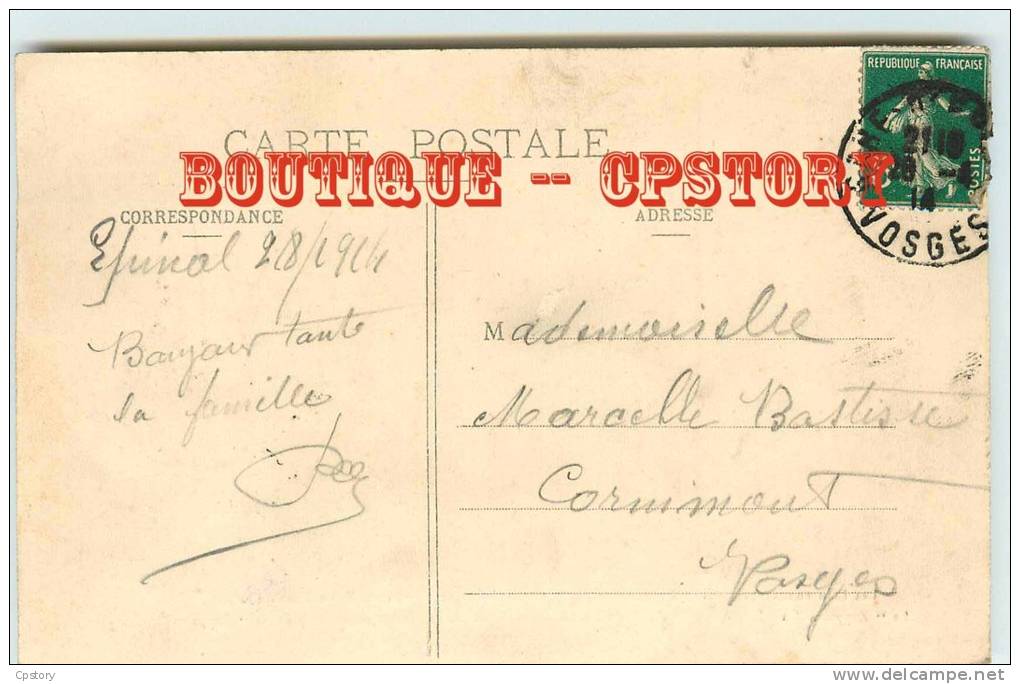 CARTE POSTALE
REPUBLIQUE FRANÇAISE
POSTES
21 10
14
VOSGES
BOUTIQUE -- CPSTORY
CORRESPONDANCE
ADRESSE
Epinal 28/1914
Bonjour toute
la famille
Mademoiselle
Marcelle
Cornimont
Vosges
Cpstory
www.delcampe.net